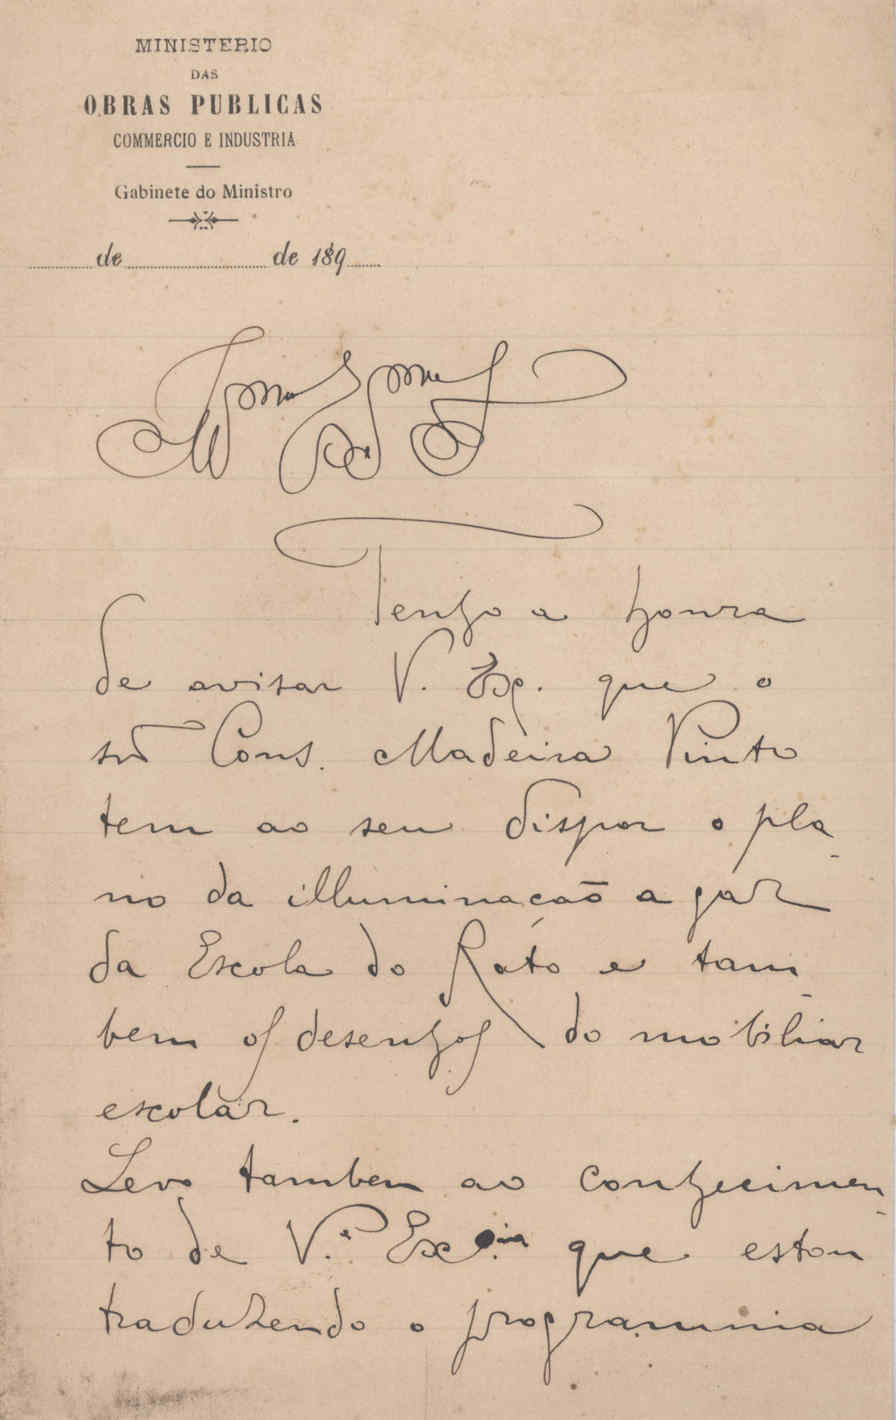 MINISTERIO
DAS
OBRAS PUBLICAS
COMMERCIO E INDUSTRIA
Gabinete do Ministro
de de 189
Illmo Exmo Sr
Tenho a honra
de avisar V. Ex. que o
snr Cons. Madeira Pinto
tem ao seu dispor o pla-
no da illuminação a gaz
da Escola do Rato e tam-
bem os desenhos do mobiliar
escolar.
Levo tambem ao conhecimen-
to de V.ª Ex.cia que estou
traduzendo o programma